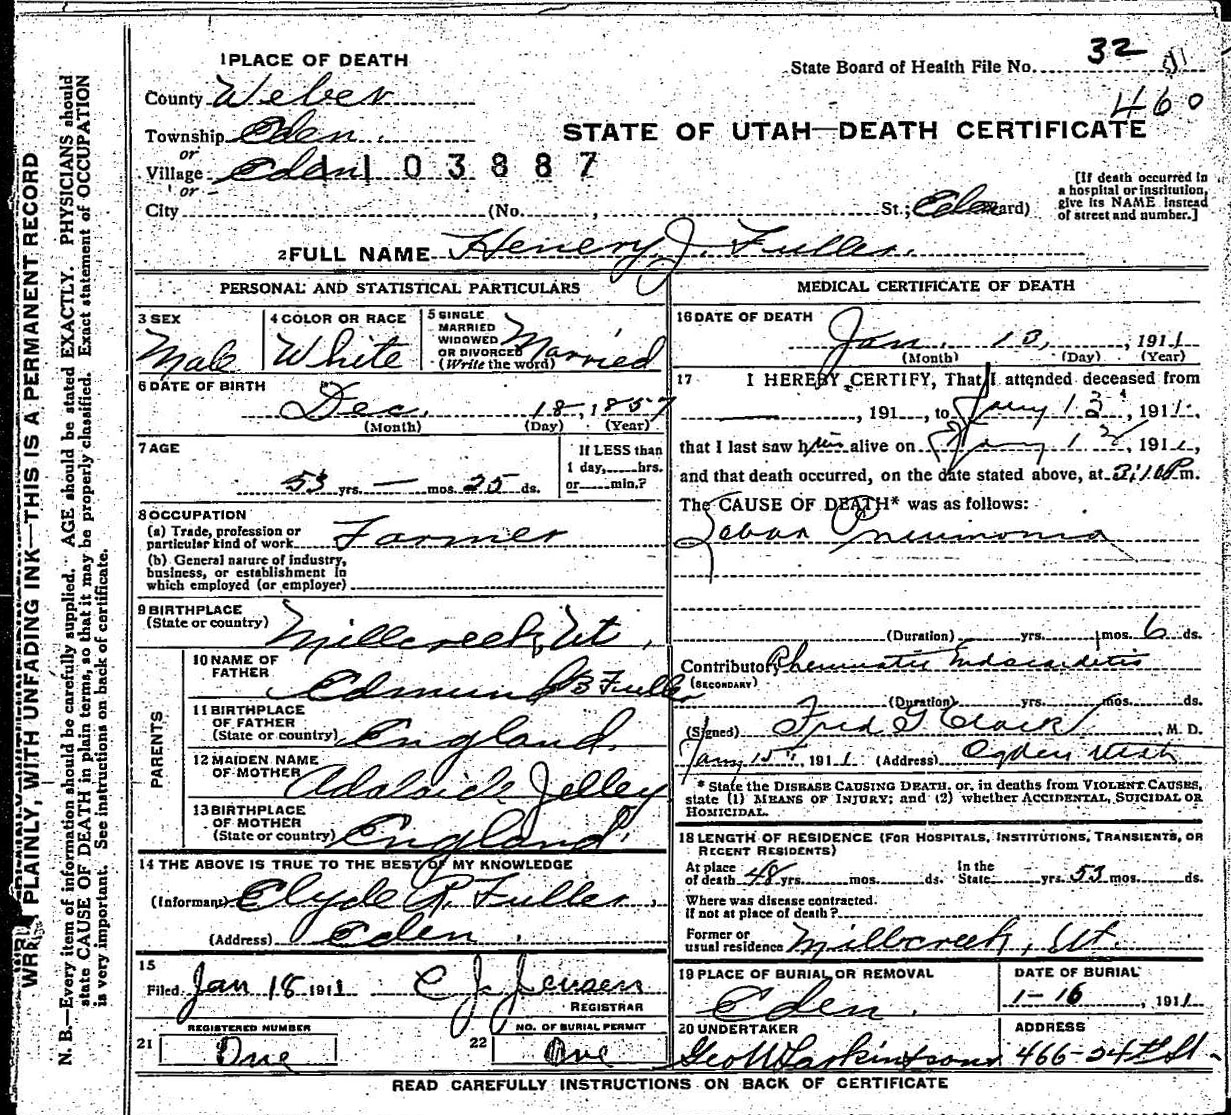 WRITE PLAINLY, WITH UNFADING INK—THIS IS A PERMANENT RECORD
N. B.—Every item of information should be carefully supplied. AGE should be stated EXACTLY. PHYSICIANS should
state CAUSE OF DEATH in plain terms, so that it may be properly classified. Exact statement of OCCUPATION
is very important. See instructions on back of certificate.
1 PLACE OF DEATH
State Board of Health File No. 32
460
County Weber
Township Eden.
STATE OF UTAH—DEATH CERTIFICATE
or
Village Eden
1103887
or
City (No. , St.; Eden Ward)
[If death occurred in
a hospital or institution,
give its NAME instead
of street and number.]
2 FULL NAME Henery J. Fuller.
PERSONAL AND STATISTICAL PARTICULARS
3 SEX
Male
4 COLOR OR RACE
White
5 SINGLE
MARRIED
WIDOWED
OR DIVORCED
(Write the word)
Married
6 DATE OF BIRTH
Dec. 18, 1857
(Month) (Day) (Year)
7 AGE
53 yrs. — mos. 25 ds.
If LESS than
1 day, hrs.
or min.?
8 OCCUPATION
(a) Trade, profession or
particular kind of work Farmer
(b) General nature of industry,
business, or establishment in
which employed (or employer)
9 BIRTHPLACE
(State or country) Millcreek, Ut.
PARENTS
10 NAME OF
FATHER Edmund B Fuller
11 BIRTHPLACE
OF FATHER
(State or country) England.
12 MAIDEN NAME
OF MOTHER Adalaid Jelley
13 BIRTHPLACE
OF MOTHER
(State or country) England.
14 THE ABOVE IS TRUE TO THE BEST OF MY KNOWLEDGE
(Informant) Clyde R. Fuller,
(Address) Eden.
15
Filed Jan 18 1911 C J Jensen
REGISTRAR
REGISTERED NUMBER
21 One
NO. OF BURIAL PERMIT
22 One
MEDICAL CERTIFICATE OF DEATH
16 DATE OF DEATH
Jan. 13, 1911
(Month) (Day) (Year)
17 I HEREBY CERTIFY, That I attended deceased from
—, 191 , to Jany 13, 1911.
that I last saw him alive on Jany 12, 1911,
and that death occurred, on the date stated above, at 3:10 P.m.
The CAUSE OF DEATH* was as follows:
Lobar Pneumonia
(Duration) yrs. mos. 6 ds.
Contributory Rheumatic Endocarditis
(SECONDARY)
(Duration) yrs. mos. ds.
(Signed) Fred G Clark, M. D.
Jany 15, 1911 (Address) Ogden Utah
* State the DISEASE CAUSING DEATH, or, in deaths from VIOLENT CAUSES,
state (1) MEANS OF INJURY; and (2) whether ACCIDENTAL, SUICIDAL OR
HOMICIDAL.
18 LENGTH OF RESIDENCE (FOR HOSPITALS, INSTITUTIONS, TRANSIENTS, OR
RECENT RESIDENTS)
At place
of death 48 yrs. mos. ds.
In the
State yrs. 53 mos. ds.
Where was disease contracted.
if not at place of death?
Former or
usual residence Millcreek, Ut.
19 PLACE OF BURIAL OR REMOVAL
Eden.
DATE OF BURIAL
1-16, 1911
20 UNDERTAKER
Geo W Larkin & sons
ADDRESS
466-24th St.
READ CAREFULLY INSTRUCTIONS ON BACK OF CERTIFICATE